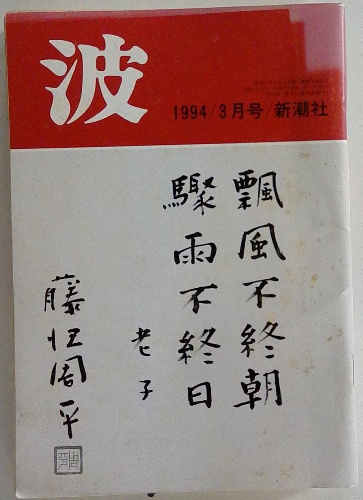 波
1994/3月号/新潮社
飄風不終朝
驟雨不終日
老子
藤沢周平